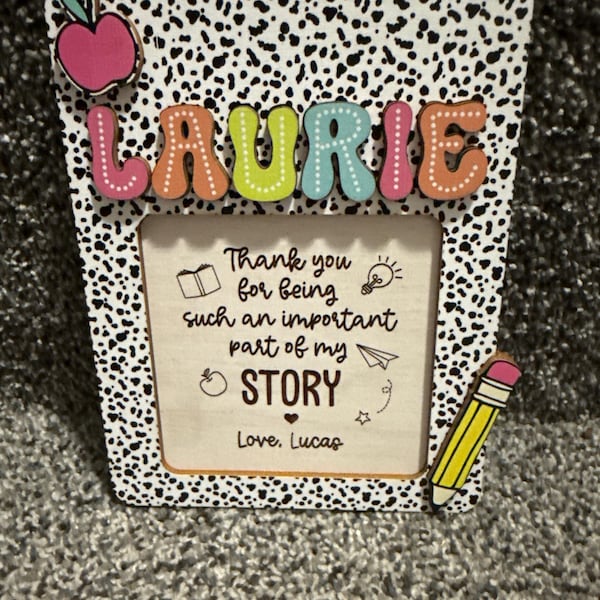 LAURIE
Thank you
for being
such an important
part of my
STORY
Love, Lucas